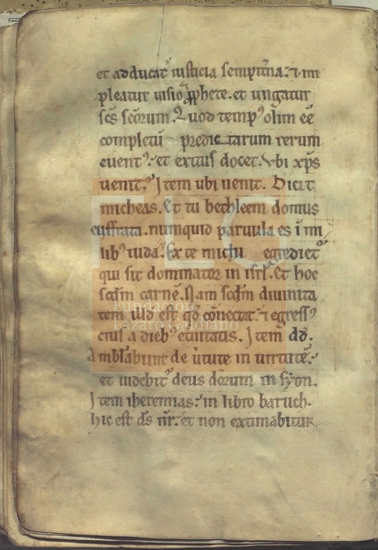 et adducat' iusticia sempit'na: & im
pleatur uisio pphete. et ungatur
scs scorum. Quod temp' olim ee
completu predictarum rerum
euent': et exitus docet. Vbi xps
uenit.' Item ubi uenit. Dicit
micheas. Et tu bethleem domus
euffrata. numquid paruula es i mi
lib' iuda. Ex te michi egrediet'
qui sit dominator in isrl. Et hoc
scdm carne. Nam scdm diuinita
tem illd est qd conectat. & egress'
eius a dieb' eternitatis. Item dd.
Ambulabunt de uirtute in uirtute.'
et uidebit' deus deorum in syon.
Item iheremias: in libro baruch.
hic est ds nr. et non extimabitur